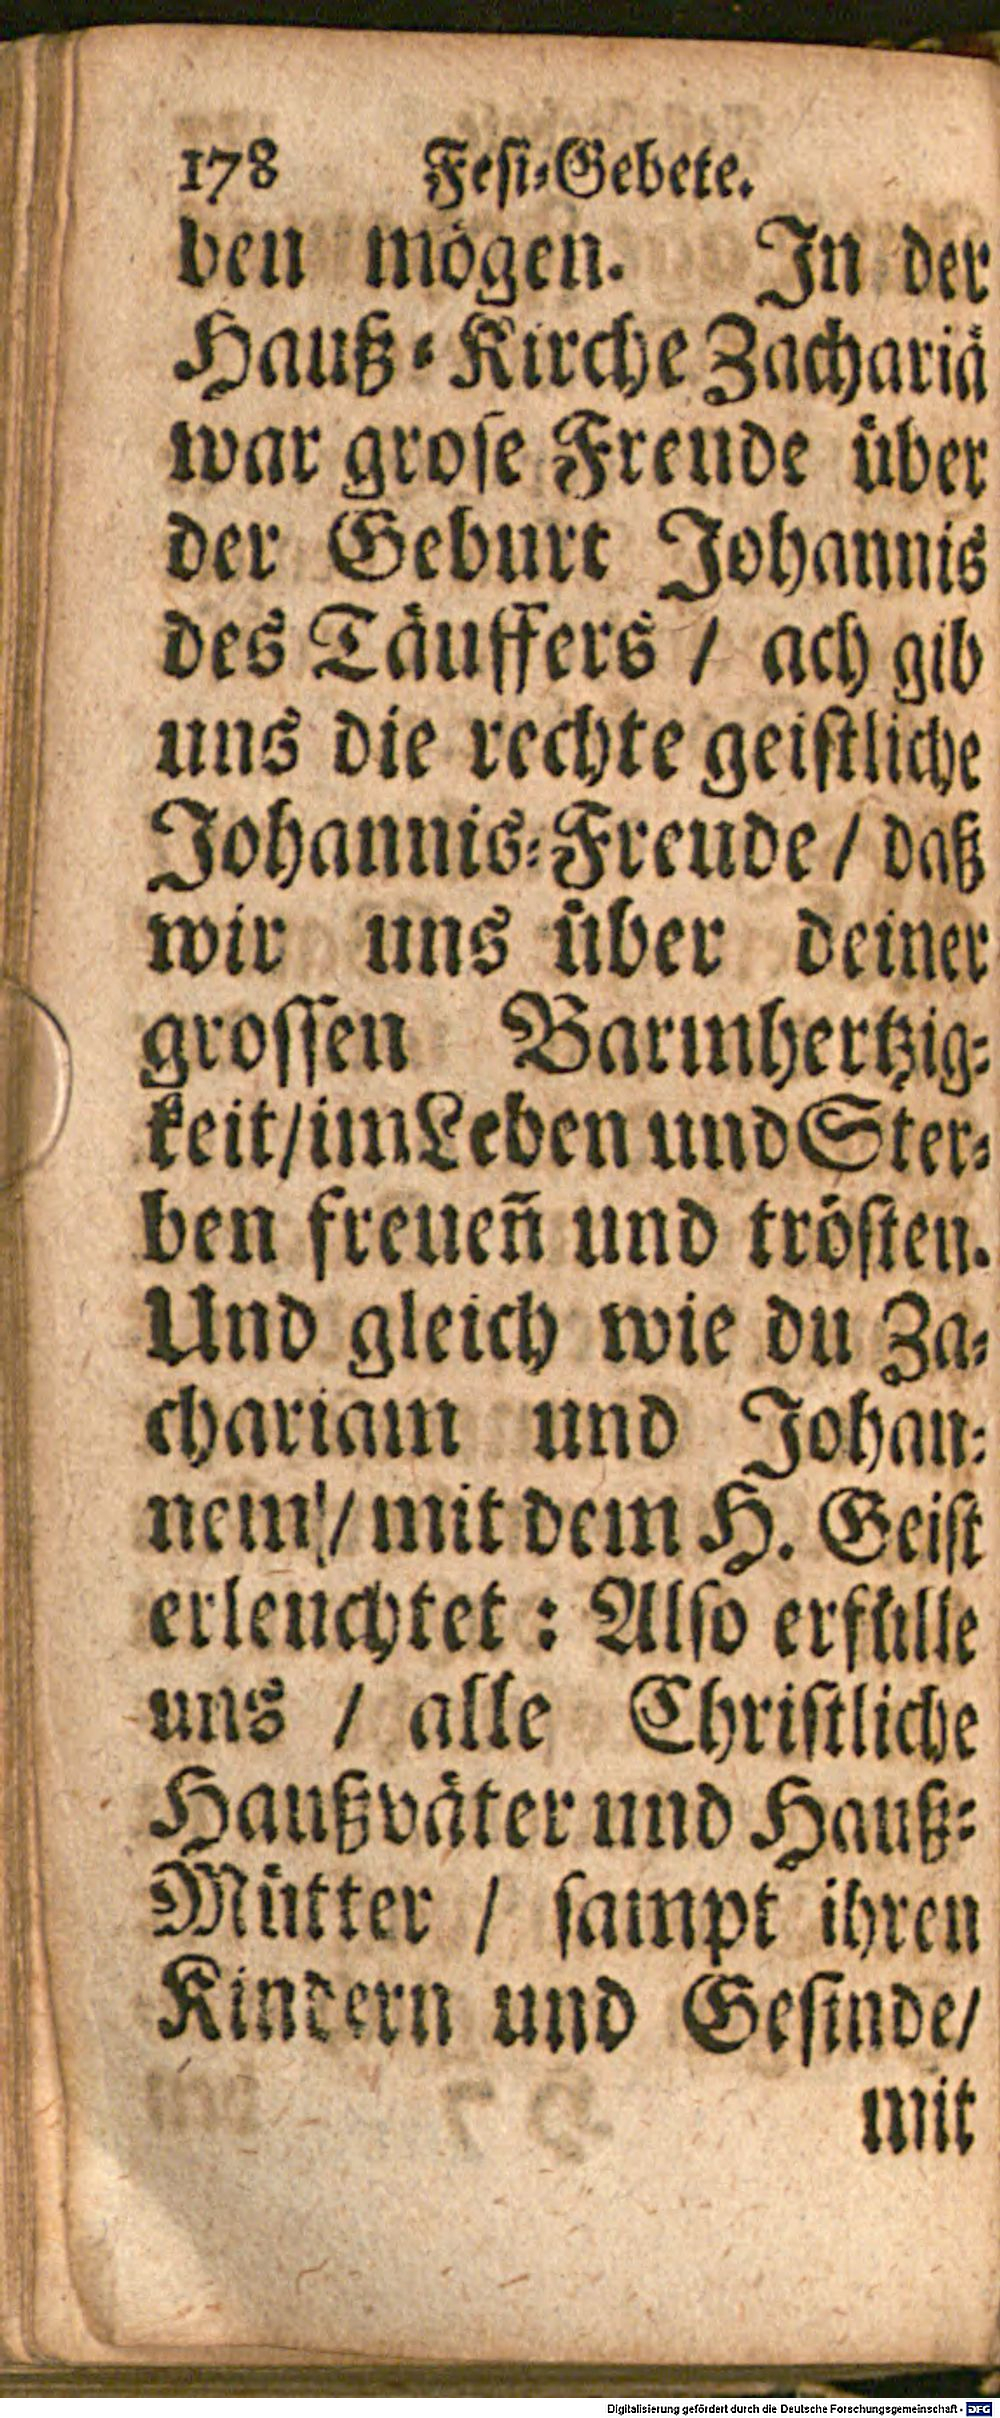 178 Fest-Gebete.
ben mögen. In der
Hauß-Kirche Zachariä
war grose Freude über
der Geburt Johannis
des Täuffers / ach gib
uns die rechte geistliche
Johannis-Freude / daß
wir uns über deiner
grossen Barmhertzig-
keit/im Leben und Ster-
ben freuen̄ und trösten.
Und gleich wie du Za-
chariam und Johan-
nem / mit dem H. Geist
erleuchtet : Also erfülle
uns / alle Christliche
Haußväter und Hauß-
Mütter / sampt ihren
Kindern und Gesinde/
mit
Digitalisierung gefördert durch die Deutsche Forschungsgemeinschaft - DFG